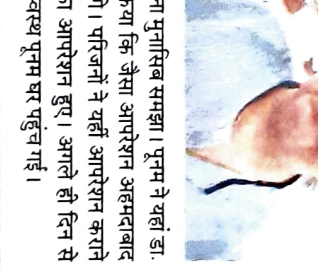 मुनासिब समझा। पूनम ने यहां डा.
कि जैसा आपरेशन अहमदाबाद
परिजनों ने यहीं आपरेशन कराने
आपरेशन हुए। अगले ही दिन से
पूनम घर पहुंच गई।